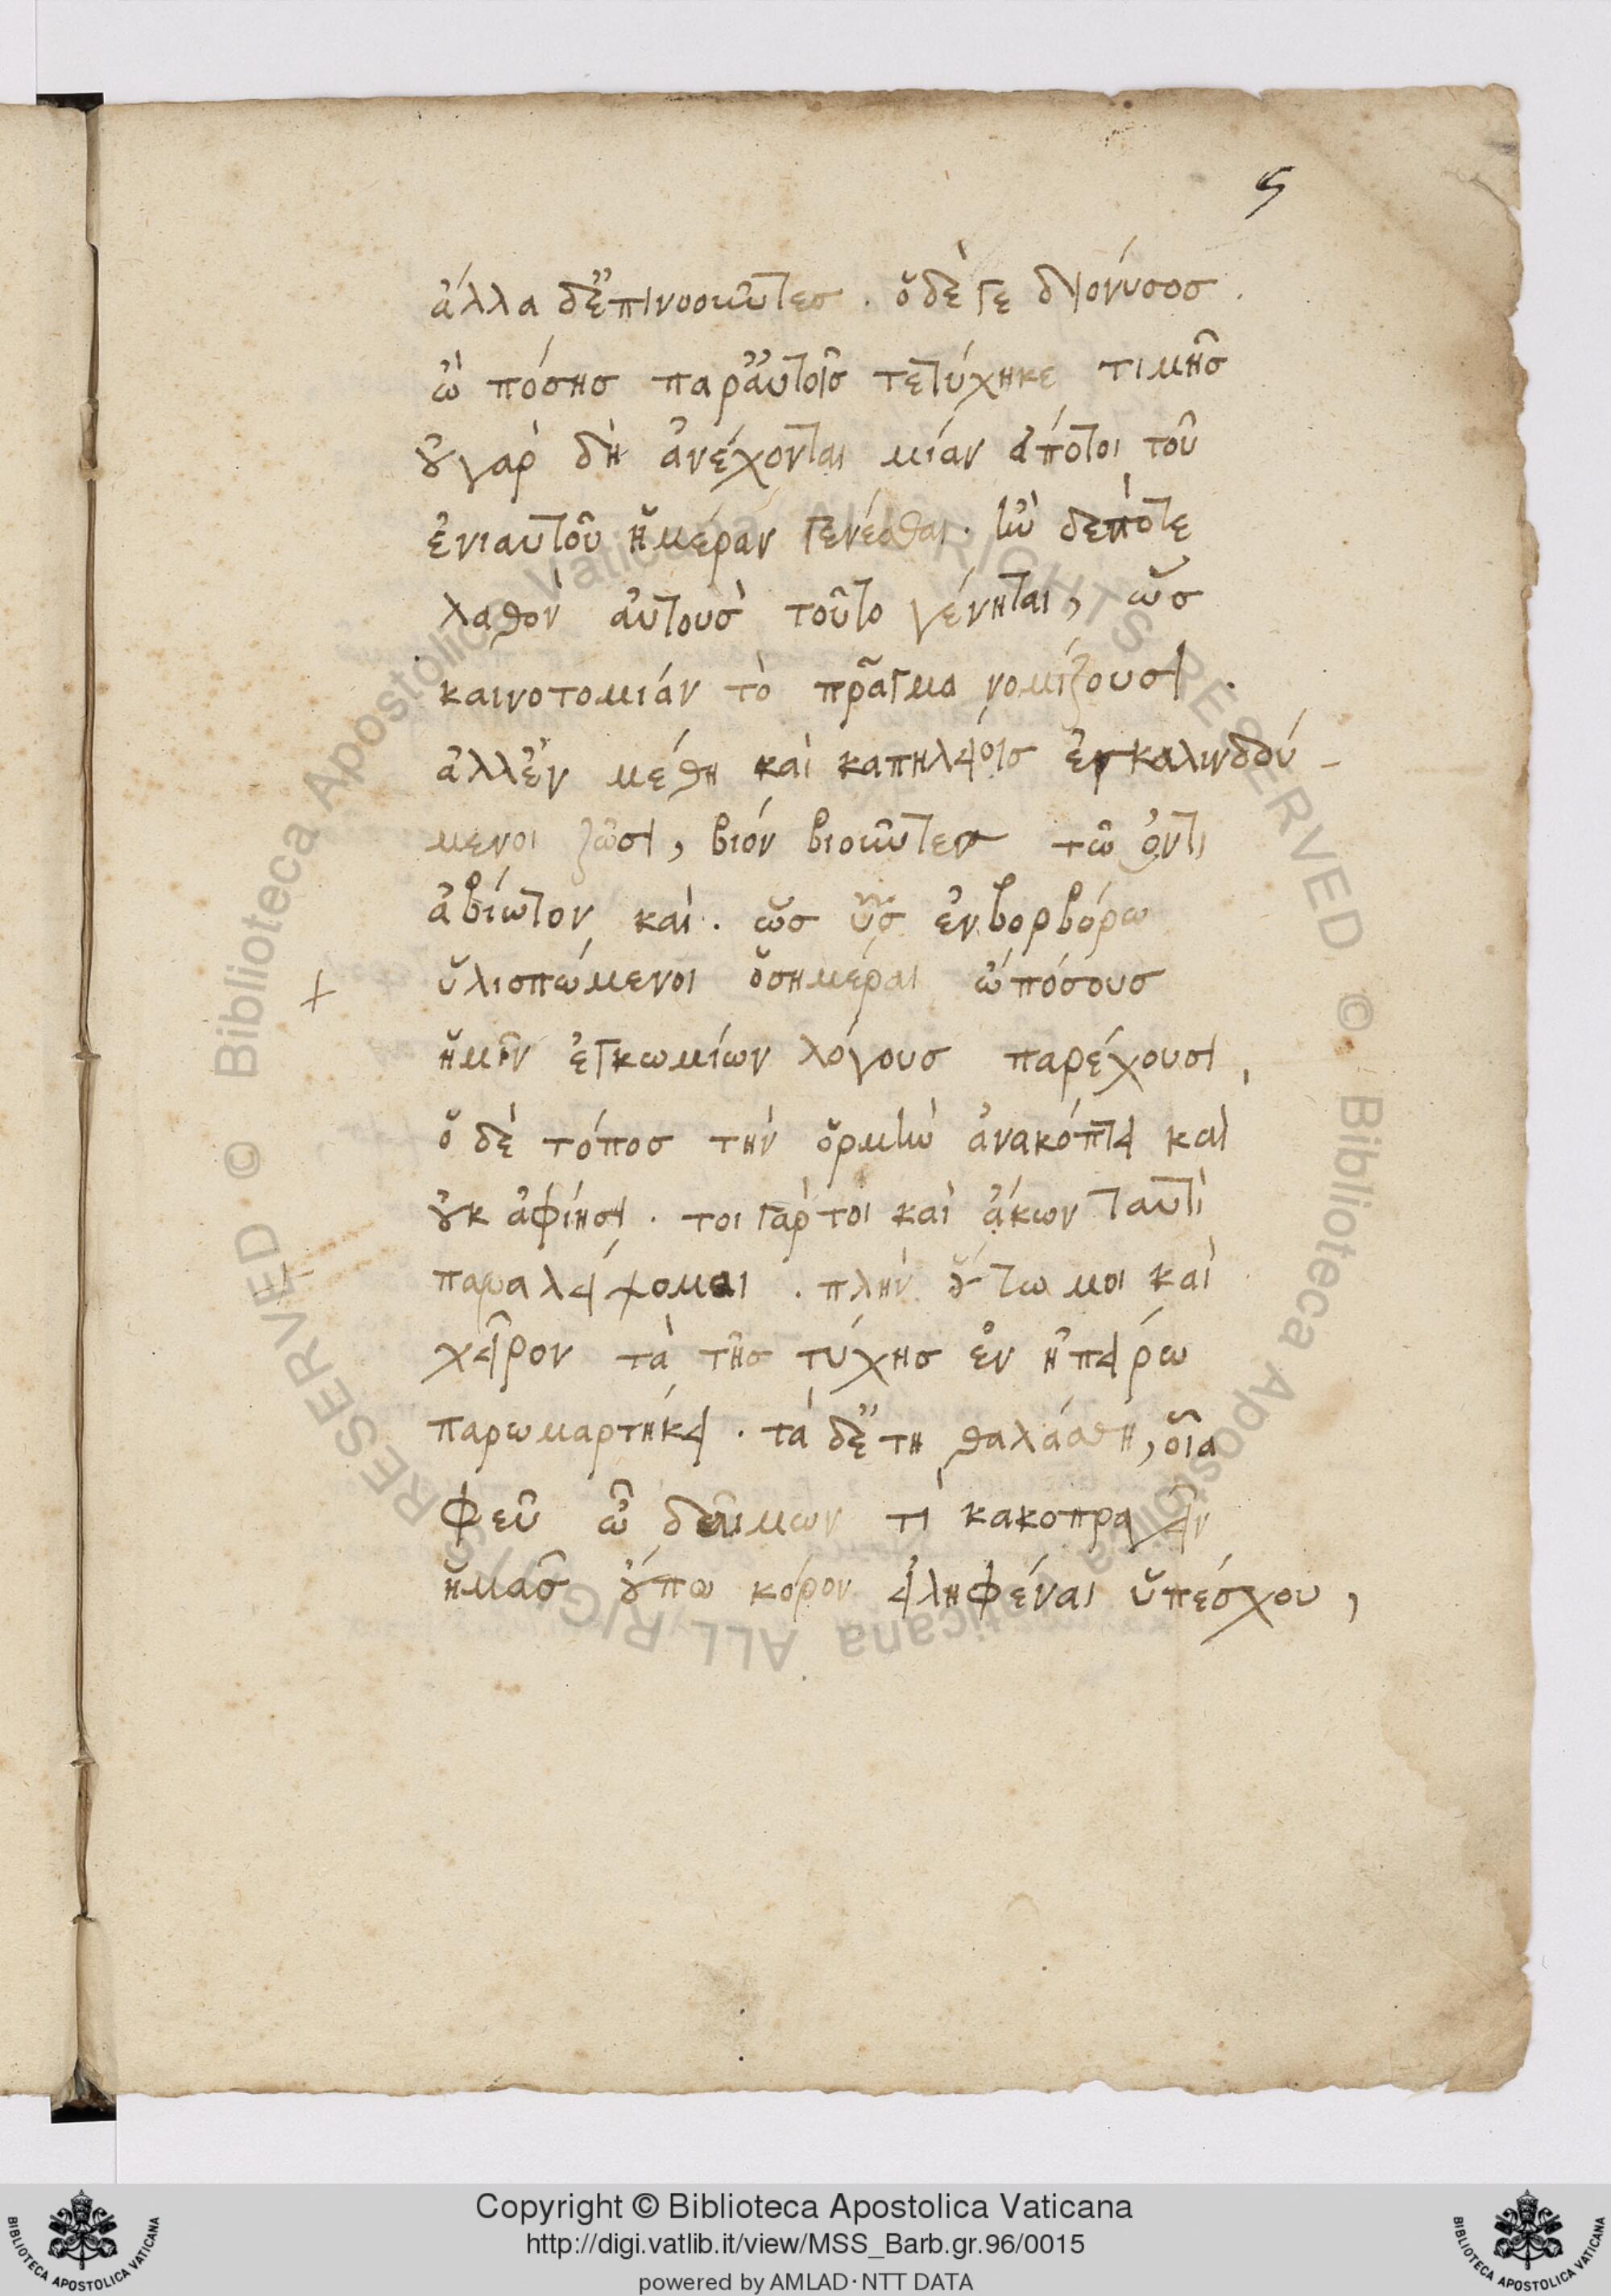 5
ἄλλα δ' ἐπινοοῦντες . ὁ δέ γε διόνυσος .
ὢ πόσης παρ' αὐτοῖς τετύχηκε τιμῆς
οὐ γὰρ δὴ ἀνέχονται μίαν ἄποτοι τοῦ
ἐνιαυτοῦ ἡμέραν γενέσθαι . ἢν δέ ποτε
λαθὸν αὐτοὺς τοῦτο γένηται, ὡς
καινοτομίαν τὸ πρᾶγμα νομίζουσι .
ἀλλ' ἐν μέθη καὶ καπηλείοις ἐγκαλινδού-
μενοι ζῶσι, βίον βιοῦντες τῶ ὄντι
ἀβίωτον καὶ . ὡς ὗς ἐν βορβόρω
+ ὑλισπώμενοι ὁσημέραι ὢ πόσους
ἡμῖν ἐγκωμίων λόγους παρέχουσι,
ὁ δὲ τόπος τὴν ὁρμὴν ἀνακόπτει καὶ
οὐκ ἀφίησι . τοιγάρτοι καὶ ἄκων ταυτὶ
παραλείψομαι . πλὴν οὕτω μοι καὶ
χεῖρον τὰ τῆς τύχης ἐν ἠπείρω
παρωμαρτήκει . τὰ δ' ἐν τῆ θαλάσση, οἷα
φεῦ ὦ δαῖμων τί κακοπραγεῖν
ἡμᾶς οὔπω κόρον εἰληφέναι ὑπέσχου,
Copyright © Biblioteca Apostolica Vaticana
http://digi.vatlib.it/view/MSS_Barb.gr.96/0015
powered by AMLAD · NTT DATA
BIBLIOTECA APOSTOLICA VATICANA
BIBLIOTECA APOSTOLICA VATICANA
© Biblioteca Apostolica Vaticana ALL RIGHTS RESERVED © Biblioteca Apostolica Vaticana ALL RIGHTS RESERVED